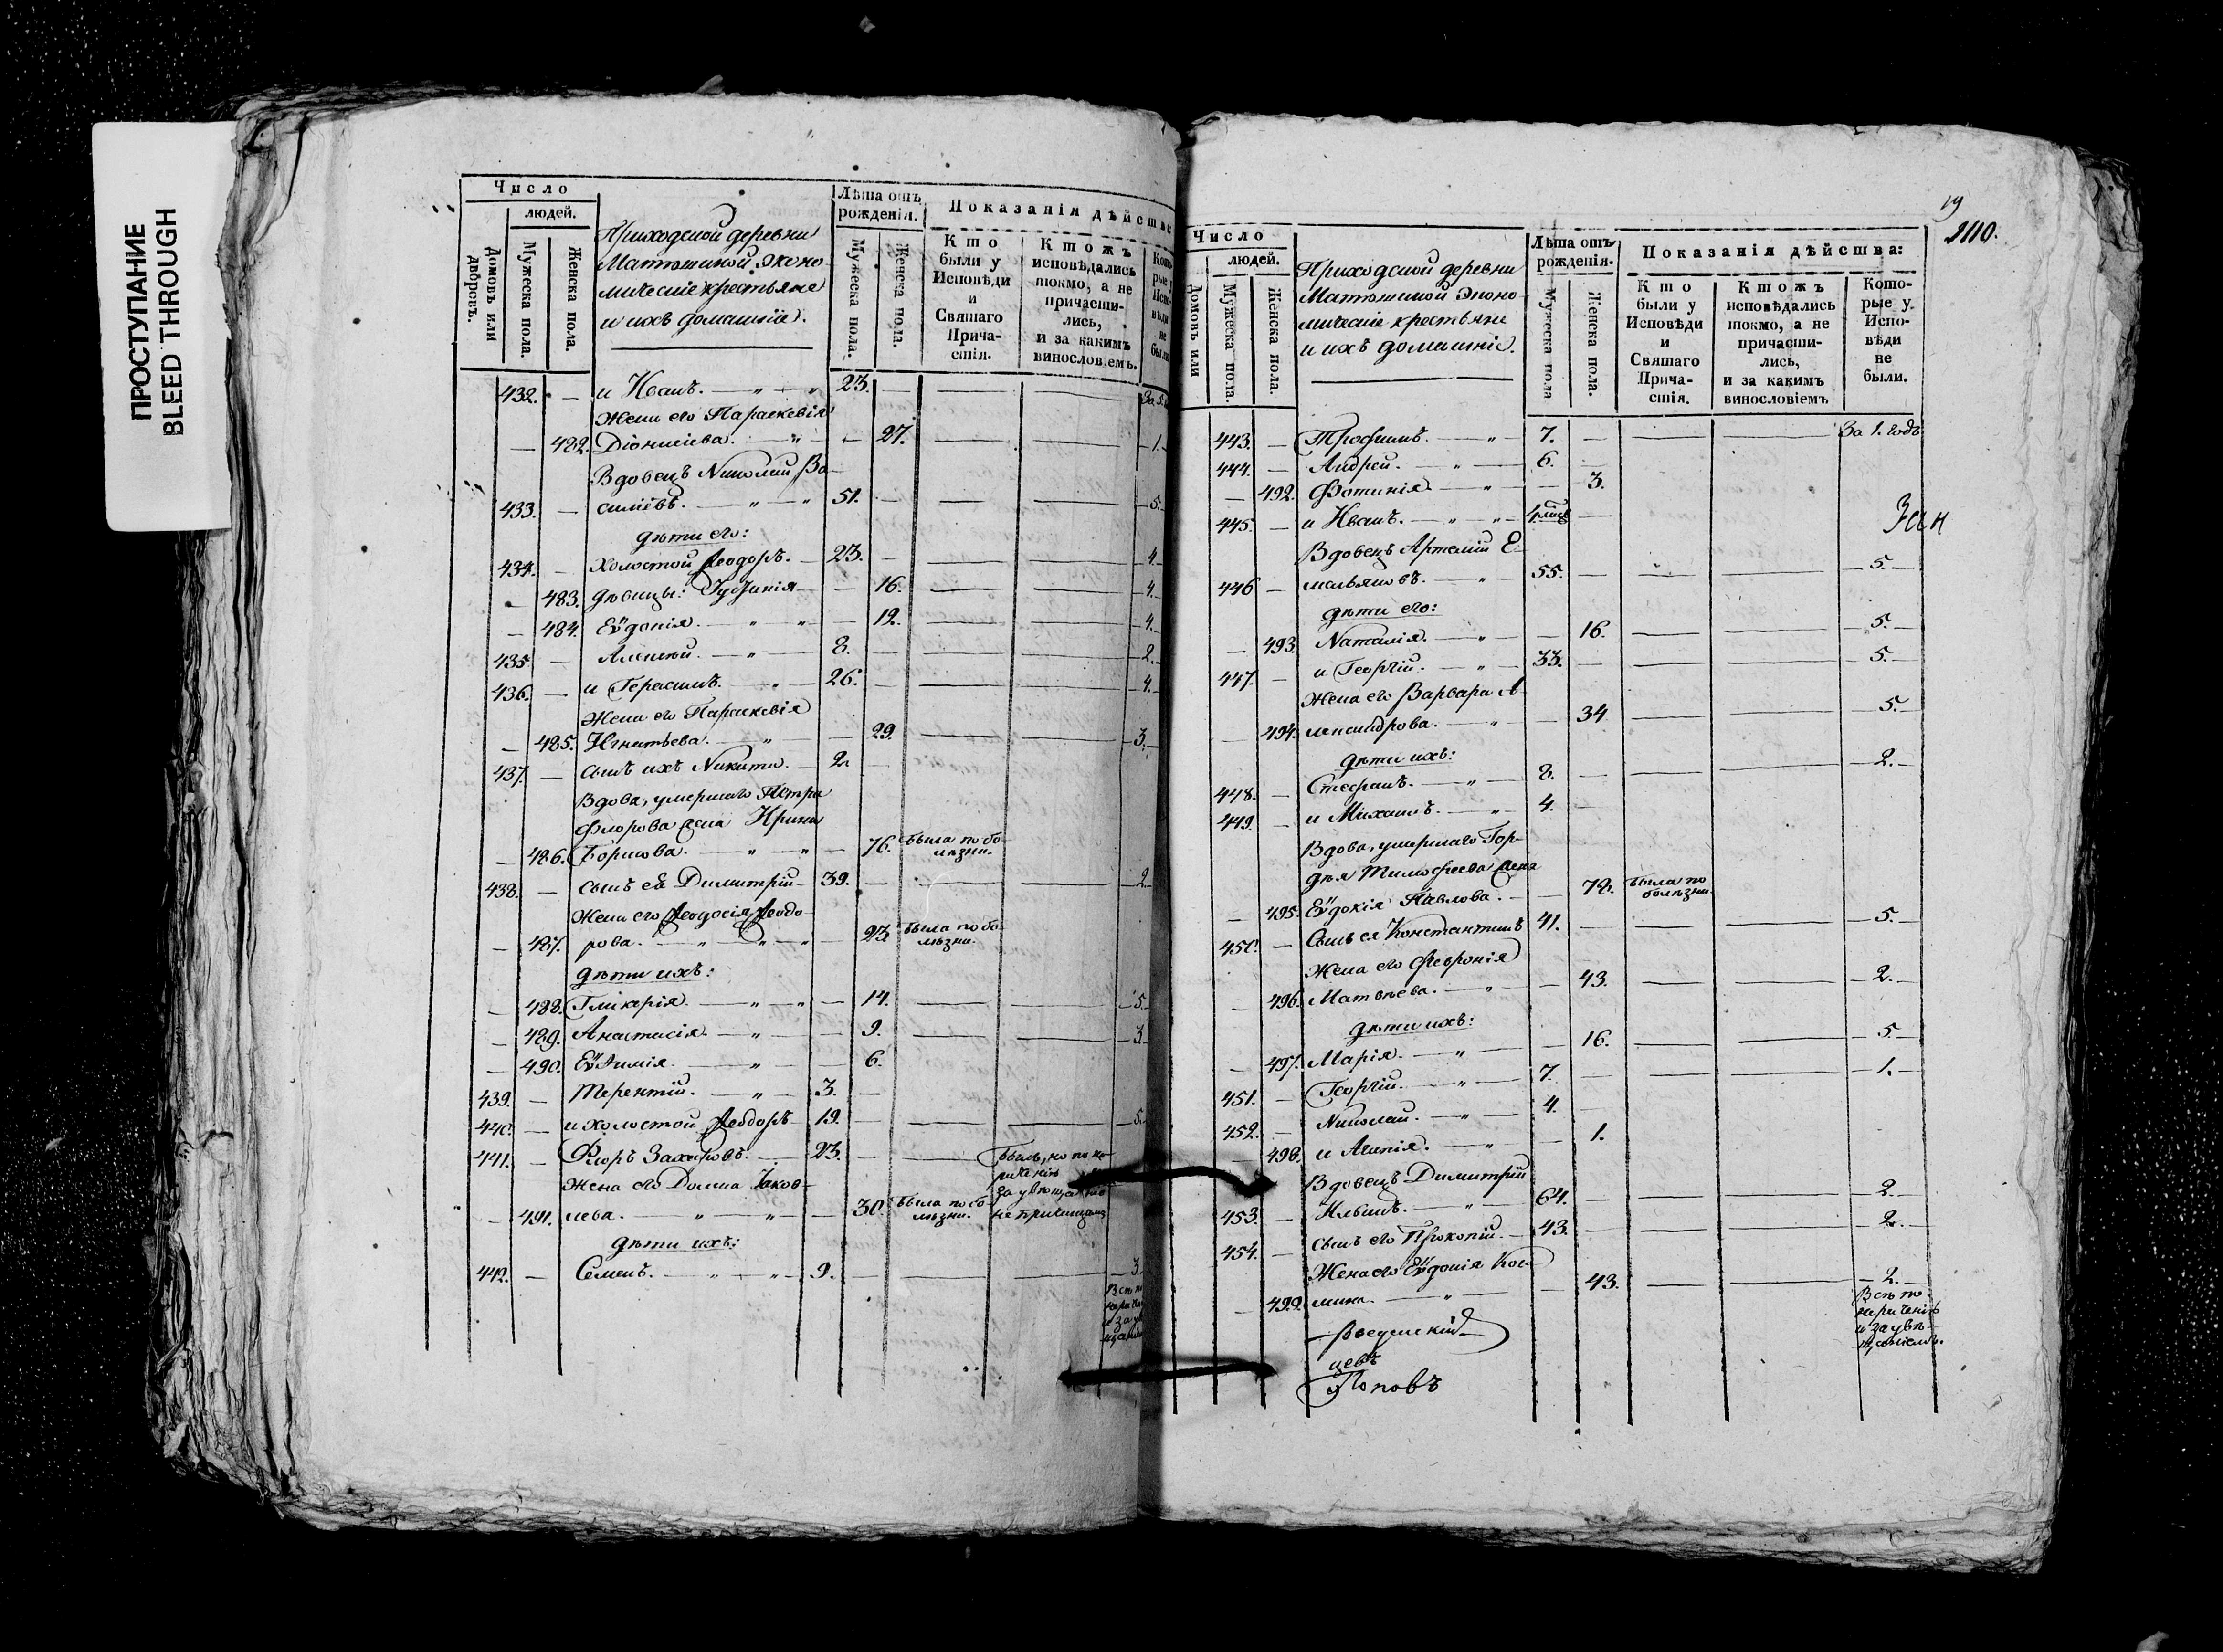 ПРОСТУПАНИЕ
BLEED THROUGH
Число
людей.
Домовъ или дворовъ.
Мужеска пола.
Женска пола.
Приходской деревни
Матюшиной Эконо
мическіе крестьяне
и ихъ домашніе.
Лѣта отъ рожденія.
Мужеска пола.
Женска пола.
Показанія дѣйства
Кто были у Исповѣди и Святаго Причастія.
Ктожъ исповѣдались токмо, а не причастились, и за какимъ винословіемъ.
432. — и Иванъ. — 23. —
Жена его Параскевія
— 482. Діонисіева. — 27. — — 1.
Вдовецъ Николай Ва
433. — силіевъ. — 51. — — — 5.
дѣти его:
434. — холостой Ѳеодоръ. — 23. — — — 4.
— 483. дѣвицы: — 16. — — 4.
— 484. Еѵдокія. — 12. — — 4.
435. — Алексѣй. — 8. — — — 2.
436. — и Герасимъ. — 26. — — — 4.
Жена его Параскевія
— 485. Игнатьева. — 29. — — 3.
437. — сынъ ихъ Никита. — 2. —
Вдова, умершаго Петра
Флорова жена Ирина
— 486. Борисова. — 76. была по болѣзни.
438. — сынъ ея Димитрій — 39. — — — 2.
Жена его Ѳеодосія Ѳеодо
— 487. рова. — 23. была по болѣзни.
дѣти ихъ:
— 488. Гликерія. — 14. — — 5.
— 489. Анастасія. — 9. — — 3.
— 490. Еѵѳимія. — 6.
439. — Терентій. — 3. —
440. — и холостой Ѳеодоръ — 19. — — — 5.
441. — Флоръ Захаровъ. — 23. — —
Жена его Домна Іаков-
— 491. лева. — 30. была по болѣзни.
дѣти ихъ:
442. — Семенъ. — 9. — — — 3.
19
1110.
Число
людей.
Домовъ или
Мужеска пола.
Женска пола.
Приходской деревни
Матюшиной Эконо
мическіе крестьяне
и ихъ домашніе.
Лѣта отъ рожденія.
Мужеска пола
Женска пола.
Показанія дѣйства:
Кто были у Исповѣди и Святаго Причастія.
Ктожъ исповѣдались токмо, а не причастились, и за какимъ винословіемъ
Которые у Исповѣди не были.
443. — Трофимъ. — 7. — — — За 1. годъ
444. — Андрей. — 6. —
— 492. Фотинія. — 3.
445. — и Иванъ. —
Вдовецъ Артемій Е-
446 — мельяновъ. — 55. — — — 5.
дѣти его:
— 493. Наталія. — 16. — — 5.
447. — и Георгій. — 33. — — — 5.
Жена его Варвара А-
— 494. лександрова. — 34 — — 5.
дѣти ихъ:
448. — Стефанъ. — 8. — — — 2.
449. — и Михаилъ. — 4. —
Вдова, умершаго Гор-
дѣя Тимофеева жена
— 495. Еѵдокія Павлова. — 78. была по болѣзни.
450. — Сынъ ея Константинъ 41. — — — 5.
Жена его Февронія
— 496. Матвѣева. — 43. — — 2.
дѣти ихъ:
— 497. Марія. — 16. — — 5
451. — Георгій. — 7. — — — 1.
452. — Николай. — 4. —
— 498. и Агапія. — 1.
Вдовецъ Димитрій
453. — Ильинъ. — 64. — — — 2.
454. — сынъ его Прокопій. — 43. — — — 2.
Жена его Еѵдокія Коз
— 499. мина. — 43. — — 2.
Введенскій
Поповъ